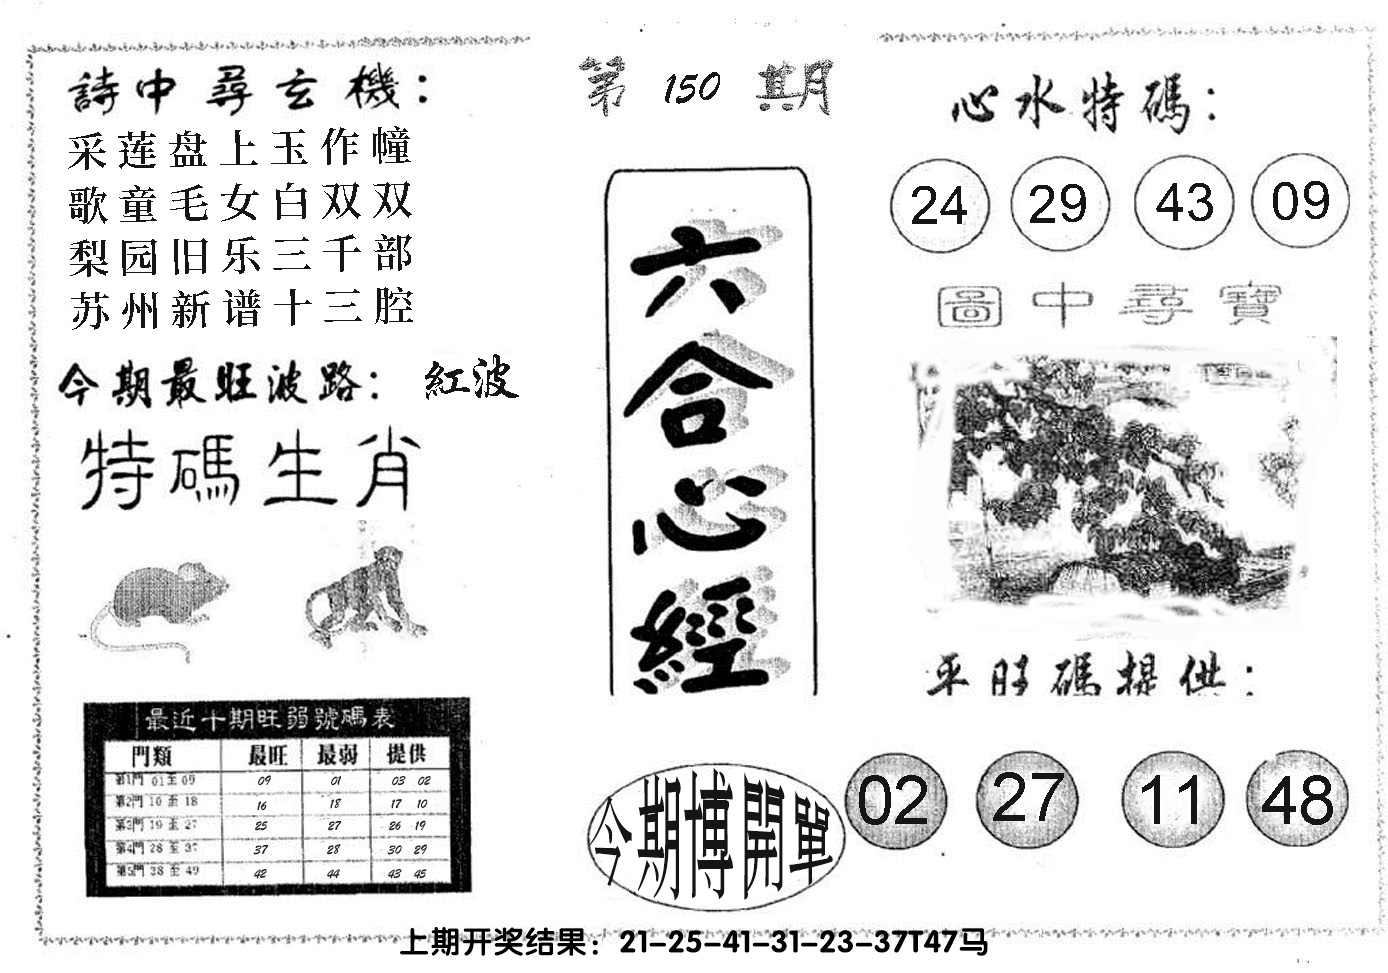 詩中尋玄機：
采莲盘上玉作幢
歌童毛女白双双
梨园旧乐三千部
苏州新谱十三腔
今期最旺波路： 紅波
特碼生肖
最近十期旺弱號碼表
門類 最旺 最弱 提供
第1門 01至09 09 01 03 02
第2門 10至18 16 18 17 10
第3門 19至27 25 27 26 19
第4門 28至37 37 28 30 29
第5門 38至49 42 44 43 45
第 150 期
六合心經
今期博開單
心水特碼：
24 29 43 09
圖中尋寶
平旺碼提供：
02 27 11 48
上期开奖结果：21-25-41-31-23-37T47马